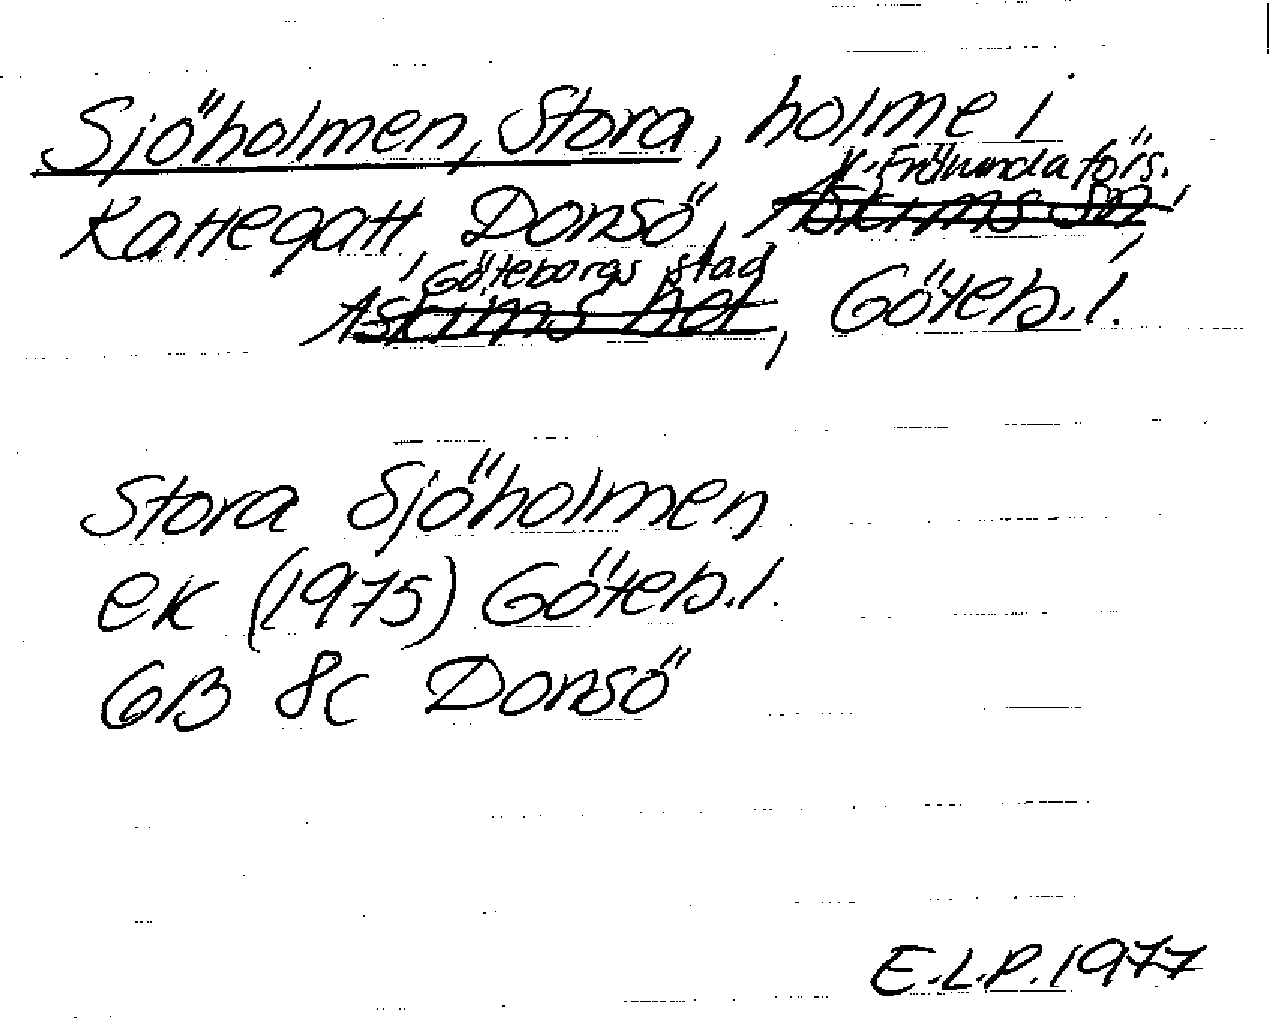 Sjöholmen, Stora, holme i
V. Frölunda förs.
Kattegatt, Donsö, Askims sn,
Göteborgs stad
Askims hd, Göteb. l.
Stora Sjöholmen
ek (1975) Göteb. l.
GB 8c Donsö
E.L.P. 1977